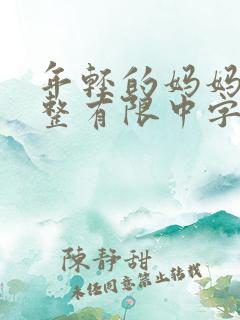 年轻的妈妈
整有限中字
陳靜甜
未经同意禁止转载